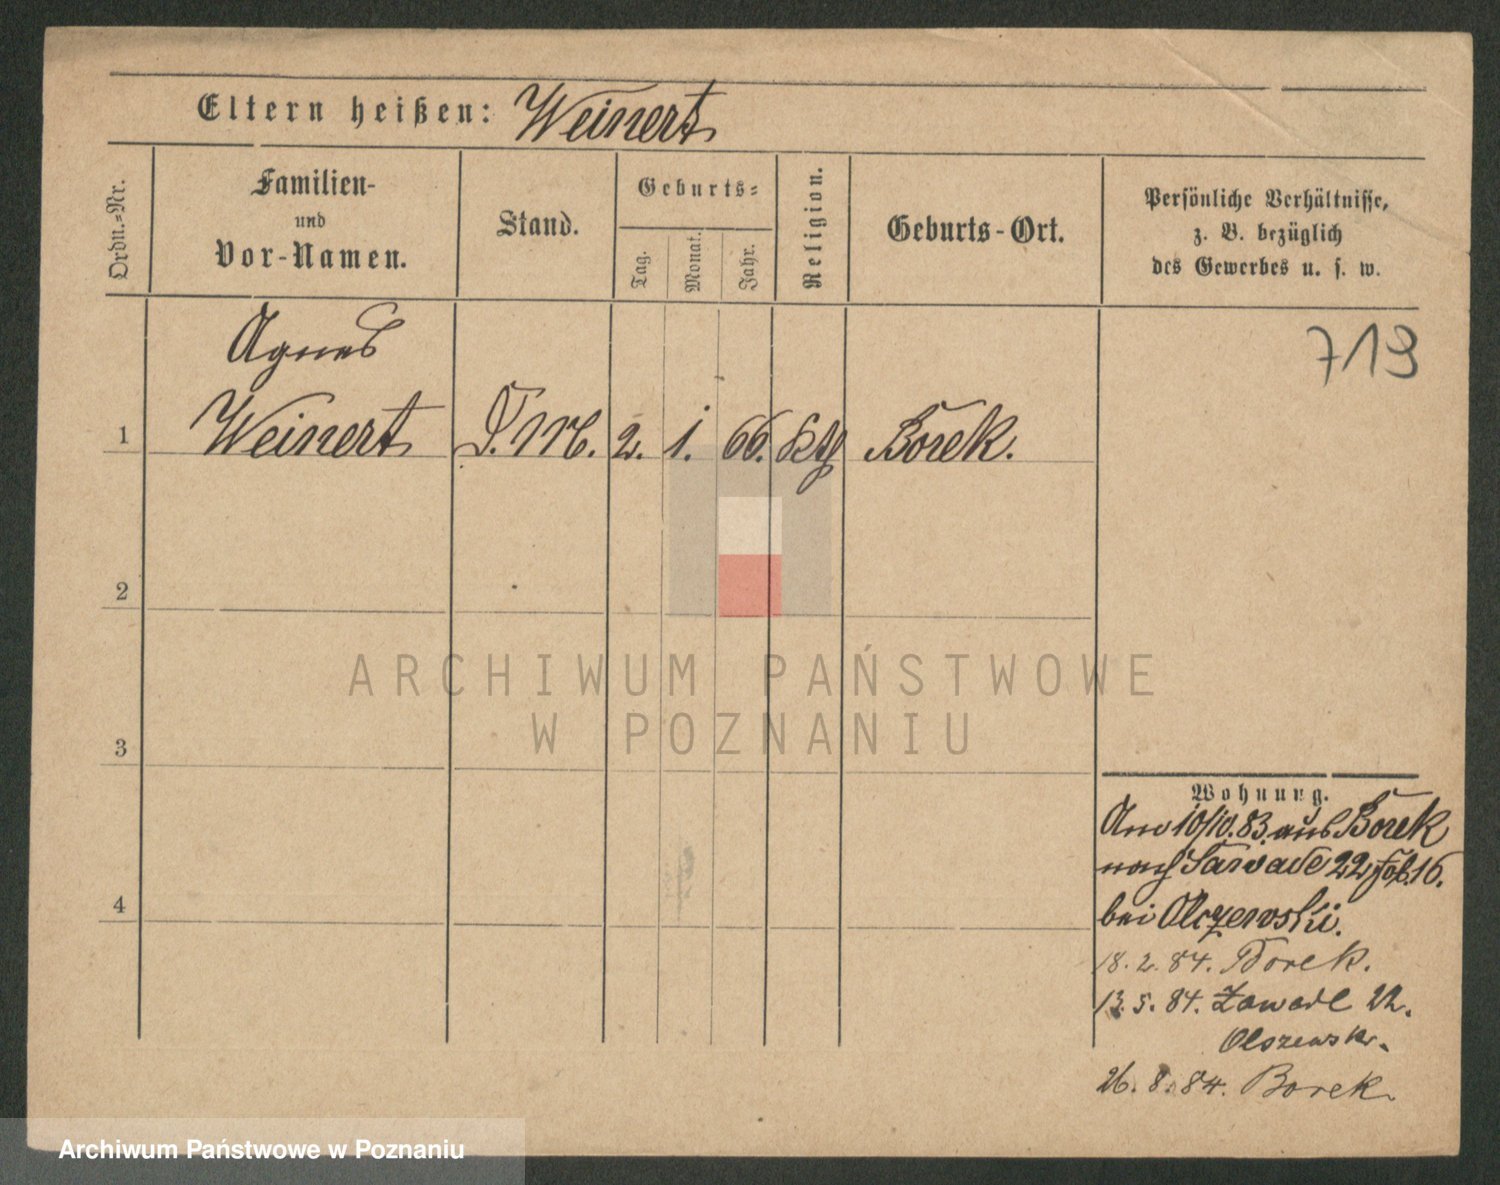 Eltern heißen: Weinert
Ordn.=Nr.
Familien-
und
Vor-Namen.
Stand.
Geburts=
Tag.
Monat.
Jahr.
Religion.
Geburts-Ort.
Persönliche Verhältnisse,
z. B. bezüglich
des Gewerbes u. s. w.
719
Agnes
1 Weinert D. M. 2. 1. 66. kth Borek.
2
3
4
Wohnung.
Am 10/10.83. aus Borek
nach 22 16.
bei Olczewski.
18. 2. 84. Borek.
13. 5. 84. Zawade 22.
Olszewski.
26. 8. 84. Borek.
ARCHIWUM PAŃSTWOWE
W POZNANIU
Archiwum Państwowe w Poznaniu